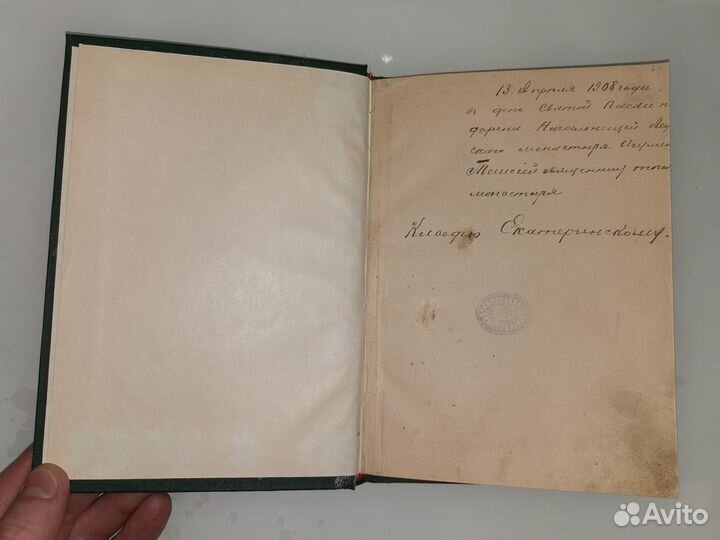 13 Апреля 1908 года,
въ день Святой Пасхи п
дарена Начальницей Леу
скаго монастыря Игуме
Таисіей священнику того
монастыря
Клавдию Екатеринскому.
Avito